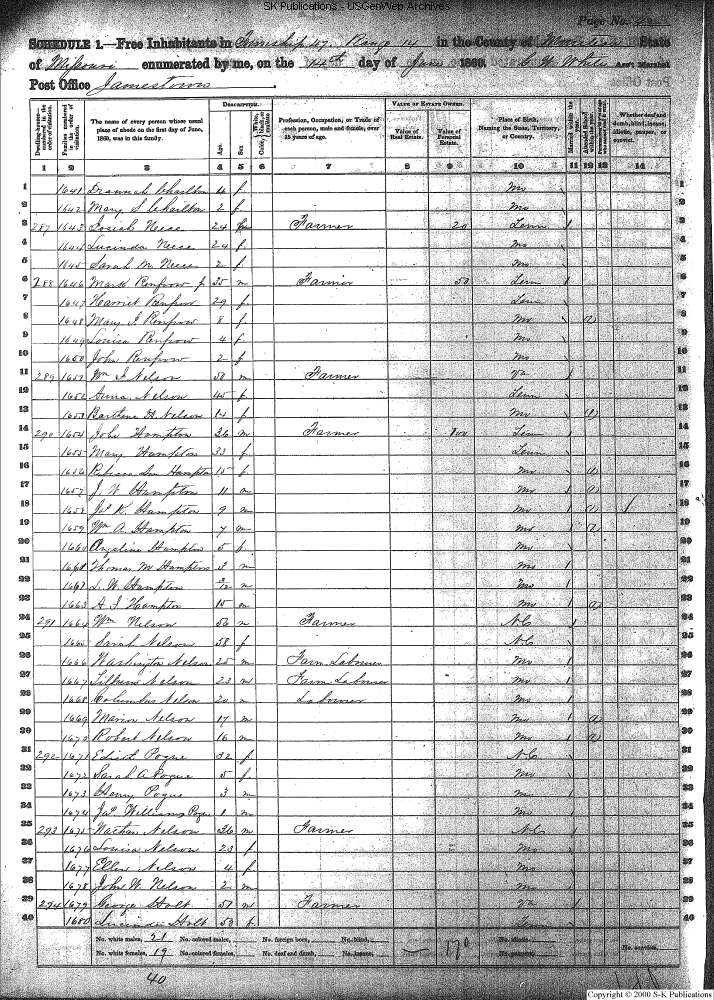 SK Publications - USGenWeb Archives
Page No. 42
SCHEDULE 1.—Free Inhabitants in Township 47, Range 14 in the County of Moniteau State
of Missouri enumerated by me, on the 14th day of June 1860. C. W. White Ass't Marshal
Post Office Jamestown
Dwelling-houses—numbered in the order of visitation.
Families numbered in the order of visitation.
The name of every person whose usual place of abode on the first day of June, 1860, was in this family.
DESCRIPTION.
Age.
Sex
Color, White, black, or mulatto
Profession, Occupation, or Trade of each person, male and female, over 15 years of age.
VALUE OF ESTATE OWNED.
Value of Real Estate.
Value of Personal Estate.
Place of Birth, Naming the State, Territory, or Country.
Married within the year.
Attended School within the year.
Whether deaf and dumb, blind, insane, idiotic, pauper, or convict.
1 2 3 4 5 6 7 8 9 10 11 12 13 14
1 1641 Charlton f Mo 1
2 1642 Mary S Charlton 2 f Mo 2
3 287 1643 Josiah Neese 24 m Farmer 20 Tenn 3
4 1644 Lucinda Neese 24 f Mo 4
5 1645 Sarah M. Neese 2 f Mo 5
6 288 1646 Mark Renfrow 35 m Farmer 50 Tenn 6
7 1647 Harriet Renfrow 29 f Tenn 7
8 1648 Mary J. Renfrow 8 f Mo 1 8
9 1649 Louisa Renfrow 4 f Mo 9
10 1650 John Renfrow 2 f Mo 10
11 289 1651 Wm J Nelson 50 m Farmer Va 11
12 1652 Anna Nelson 45 f Tenn 12
13 1653 Nelson 14 f Mo 1 13
14 290 1654 John Hampton 36 m Farmer 100 Tenn 14
15 1655 Mary Hampton 33 f Tenn 15
16 1656 Rebecca Ann Hampton 15 f Mo 1 16
17 1657 J. W Hampton 11 m Mo 1 17
18 1658 Jas K Hampton 9 m Mo 1 / 18
19 1659 Wm A Hampton 7 m Mo 1 19
20 1660 Angelina Hampton 5 f Mo 20
21 1661 Thomas M Hampton 3 m Mo 21
22 1662 L. W Hampton 3/12 m Mo 22
23 1663 A J Hampton 15 m Mo 1 23
24 291 1664 Wm Nelson 56 m Farmer N.C 24
25 1665 Sarah Nelson 58 f N.C 25
26 1666 Washington Nelson 25 m Farm Laborer Mo 26
27 1667 Nelson 23 m Farm Laborer Mo 27
28 1668 Columbus Nelson 20 m Laborer Mo 28
29 1669 Marion Nelson 17 m Mo 1 29
30 1670 Robert Nelson 16 m Mo 1 30
31 292 1671 Edith Pogue 32 f N.C 31
32 1672 Sarah A Pogue 5 f Mo 32
33 1673 Henry Pogue 3 m Mo 33
34 1674 Jas Williams Pogue 1 m Mo 34
35 293 1675 Nathan Nelson 36 m Farmer N.C 35
36 1676 Louisa Nelson 23 f Mo 36
37 1677 Ellen Nelson 4 f Mo 37
38 1678 John W. Nelson 2 m Mo 38
39 294 1679 George Holt 51 m Farmer Va 39
40 1680 Lucinda Holt 53 f Tenn 40
No. white males, 21 No. colored males, No. foreign born, No. blind, No. idiotic,
No. white females, 19 No. colored females, No. deaf and dumb, No. insane, 170 No. paupers, No. convicts,
40
Copyright © 2000 S-K Publications